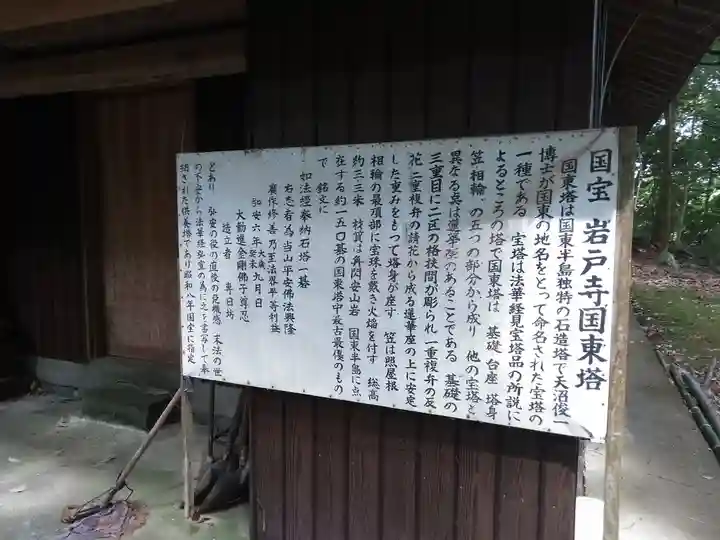 国宝 岩戸寺国東塔
国東塔は国東半島独特の石造塔で天沼俊一
博士が国東の地名をとって命名された宝塔の
一種である 宝塔は法華経見宝塔品の所説に
よるところの塔で国東塔は 基礎 台座 塔身
笠 相輪 の五つの部分から成り 他の宝塔と
異なる点は蓮華座のあることである 基礎の
三重目に二区の格狭間が彫られ 一重複弁の反
花 二重複弁の請花から成る蓮華座の上に安定
した重みをもって塔身が座す 笠は照屋根
相輪の最頂部に宝珠を戴き火焔を付す 総高
約三・三米 材質は角閃安山岩 国東半島に点
在する約一五〇基の国東塔中最古最優のもの
で 銘文に
如法経奉納石塔一基
右志者為当山平安佛法興隆
廣作修善乃至法界平等利益
弘安六年 大歳癸未 九月日
大勧進金剛佛子尊忍
造立者 尊日坊
とあり 弘安の役の直後の危機感 末法の世
の下から法華経弘宣の為に之を書写して奉
招された供養塔であり昭和八年国宝に指定